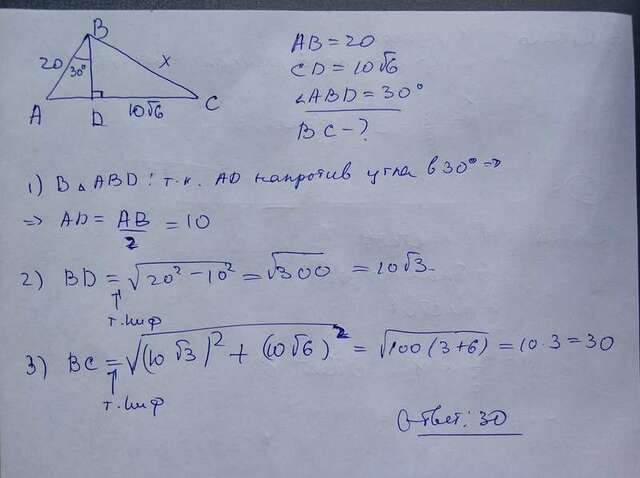 B
20
30°
x
A
D
10√6
C
AB = 20
CD = 10√6
∠ABD = 30°
BC - ?
1) В △ ABD: т.к. AD напротив угла в 30° =>
=> AD = AB/2 = 10
2) BD = √(20² - 10²) = √300 = 10√3
т. Пиф
3) BC = √((10√3)² + (10√6)²) = √(100(3+6)) = 10·3 = 30
т. Пиф
Ответ: 30